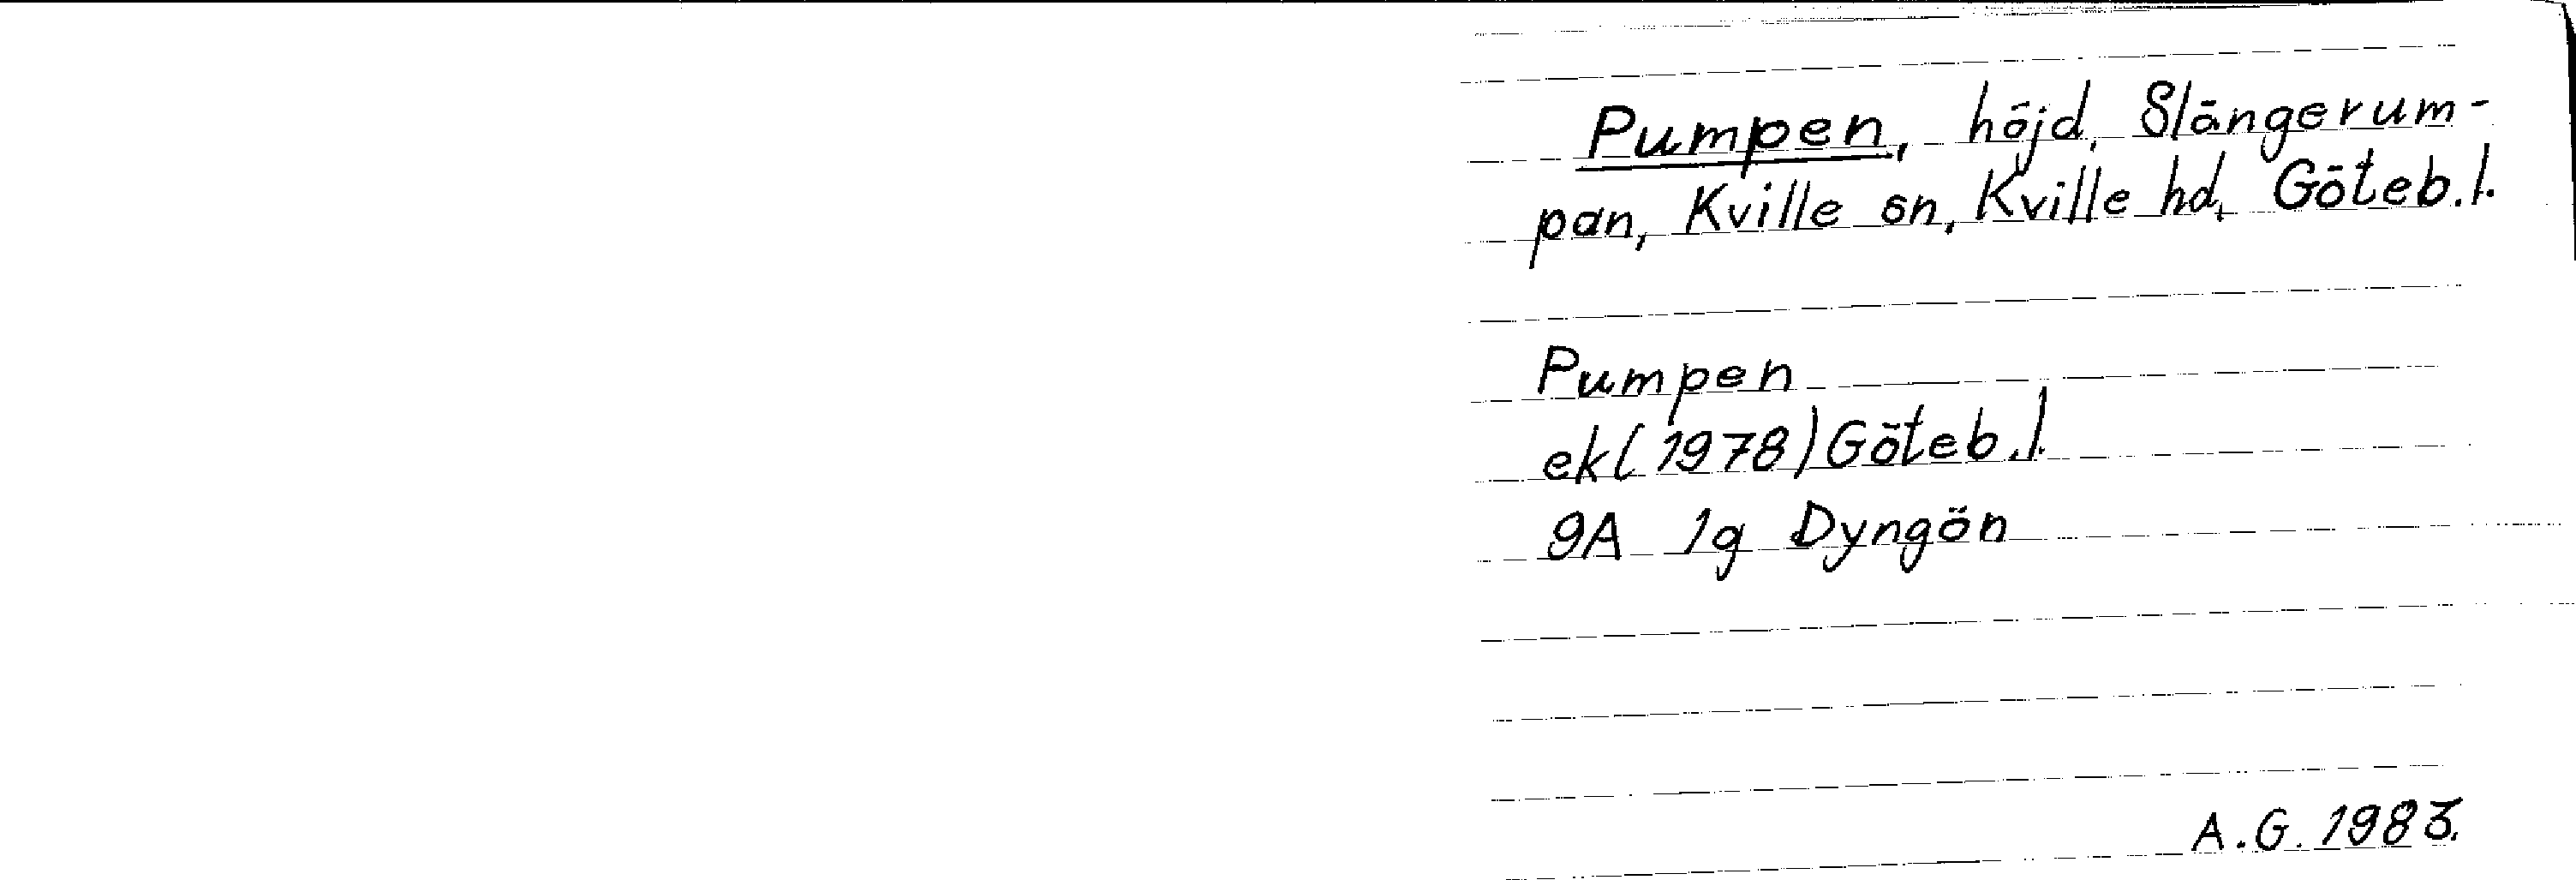 Pumpen, höjd, Slängerum-
pan, Kville sn, Kville hd, Göteb.l.
Pumpen
ek(1978)Göteb.l.
9A 1g Dyngön
A.G. 1983.